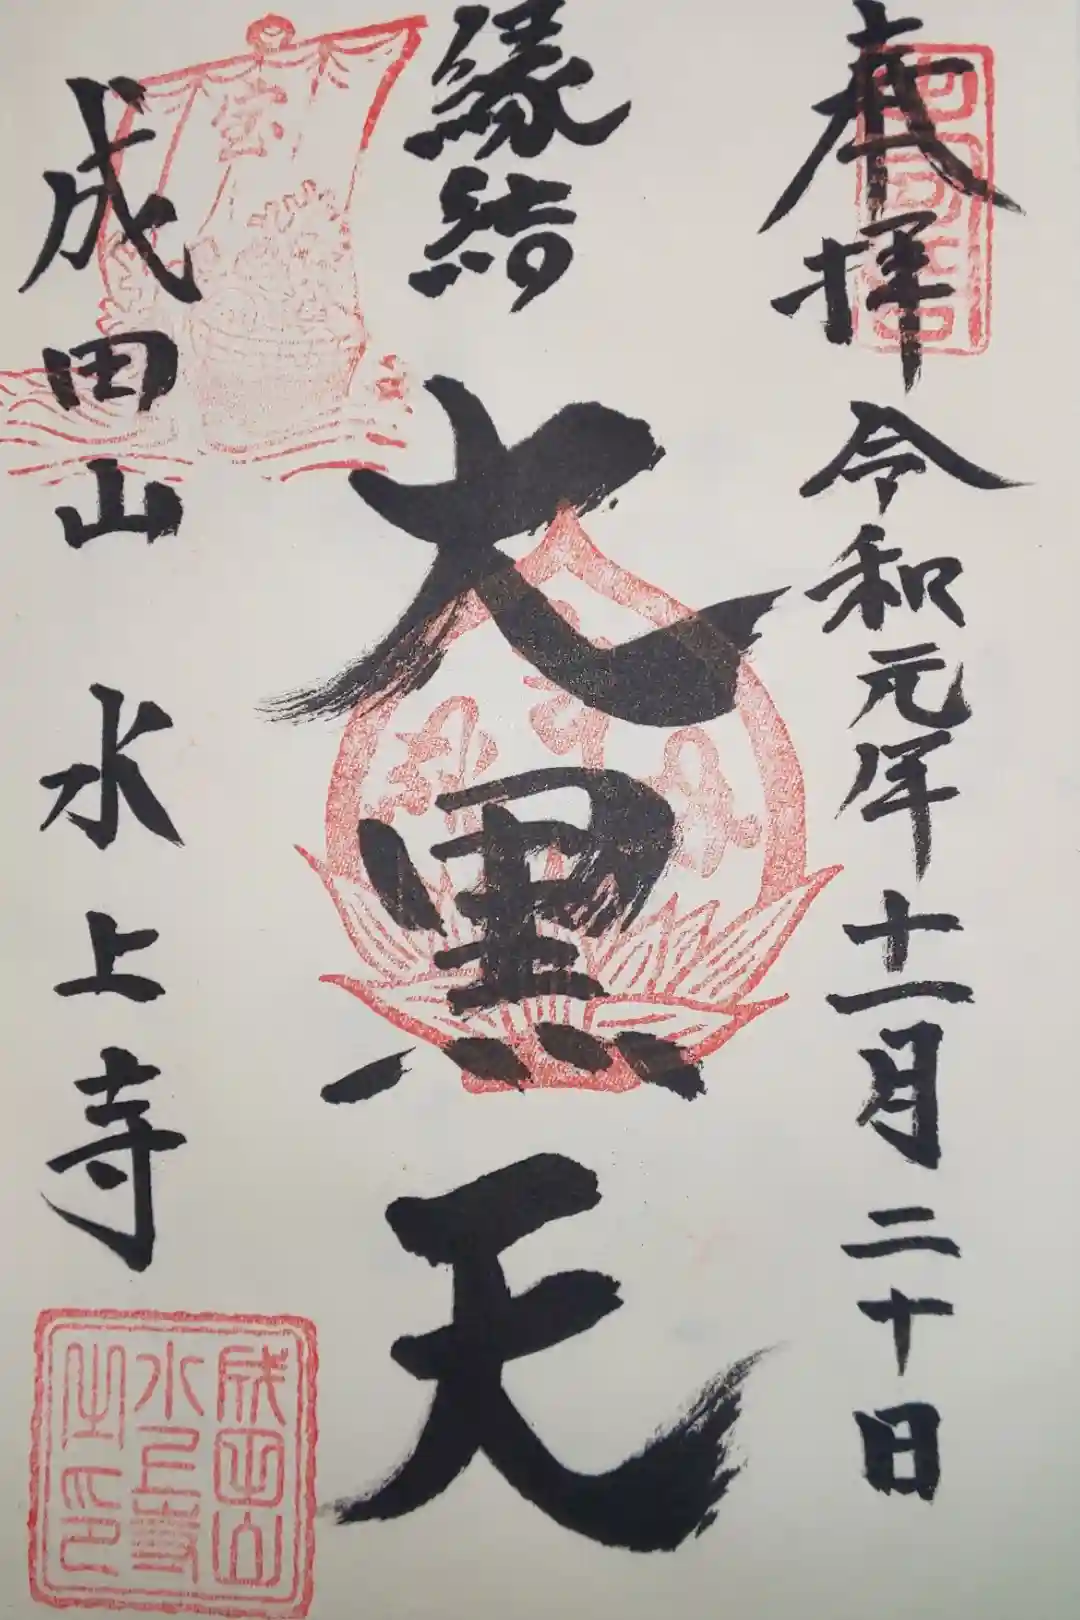 奉拝 令和元年十一月二十日
縁結
大黒天
宝
成田山 水上寺
成田山
水上寺
之印